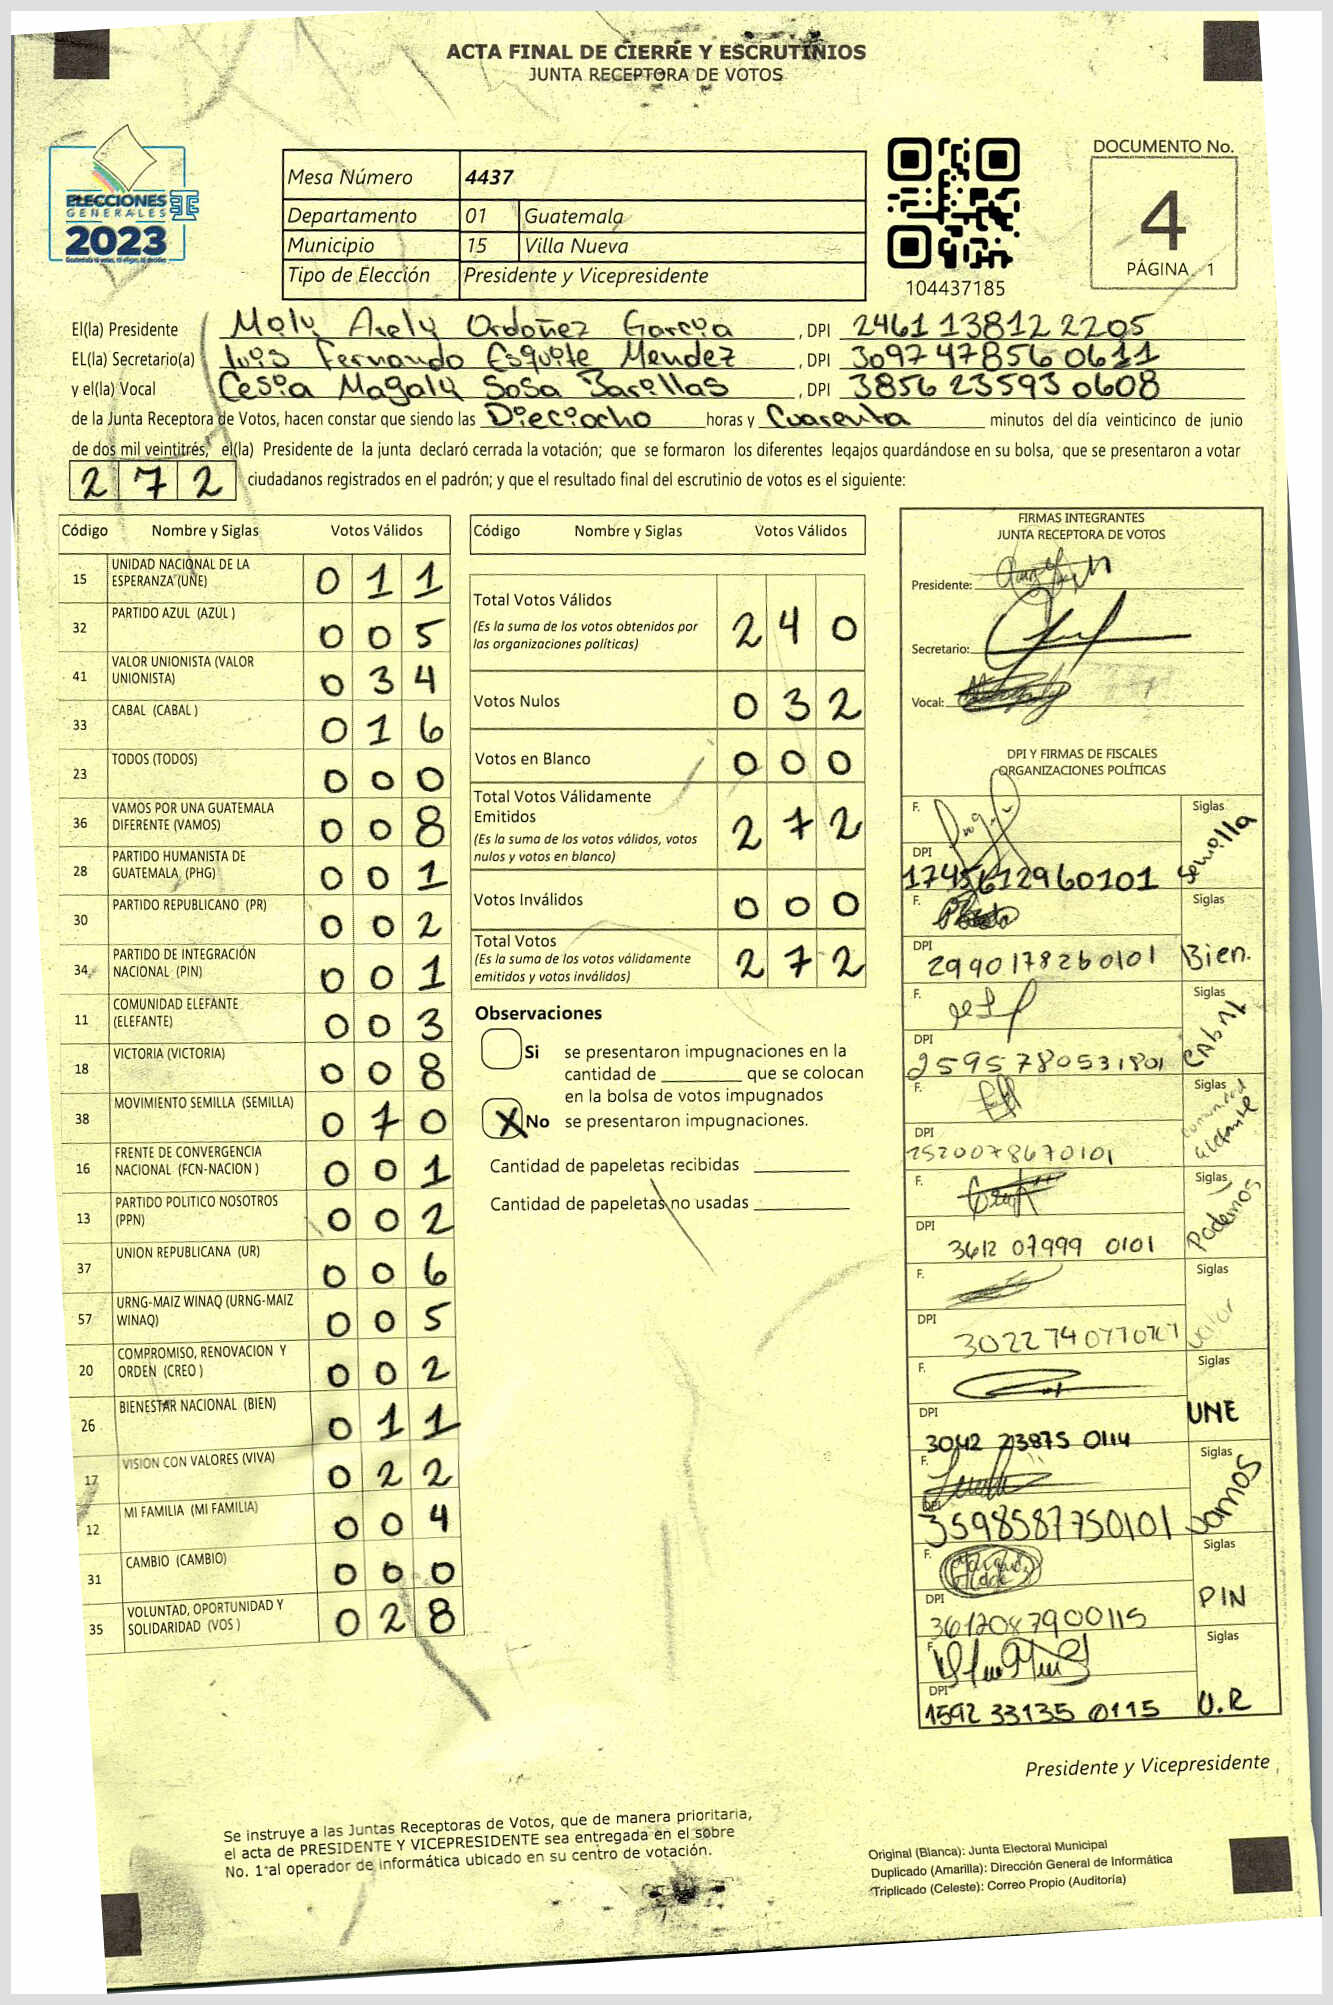 ACTA FINAL DE CIERRE Y ESCRUTINIOS
JUNTA RECEPTORA DE VOTOS
ELECCIONES
GENERALES
2023
Mesa Número 4437
Departamento 01 Guatemala
Municipio 15 Villa Nueva
Tipo de Elección Presidente y Vicepresidente
104437185
DOCUMENTO No.
4
PÁGINA 1
El(la) Presidente Moly Arely Ordoñez García , DPI 2461 13812 2205
EL(la) Secretario(a) Luis Fernando Esquite Mendez , DPI 3097 47856 0611
y el(la) Vocal Cesia Magaly Sosa Barillas , DPI 3856 23593 0608
de la Junta Receptora de Votos, hacen constar que siendo las Dieciocho horas y Cuarenta minutos del día veinticinco de junio
de dos mil veintitrés, el(la) Presidente de la junta declaró cerrada la votación; que se formaron los diferentes legajos guardándose en su bolsa, que se presentaron a votar
272 ciudadanos registrados en el padrón; y que el resultado final del escrutinio de votos es el siguiente:
Código Nombre y Siglas Votos Válidos
15 UNIDAD NACIONAL DE LA ESPERANZA (UNE) 011
32 PARTIDO AZUL (AZUL ) 005
41 VALOR UNIONISTA (VALOR UNIONISTA) 034
33 CABAL (CABAL ) 016
23 TODOS (TODOS) 000
36 VAMOS POR UNA GUATEMALA DIFERENTE (VAMOS) 008
28 PARTIDO HUMANISTA DE GUATEMALA (PHG) 001
30 PARTIDO REPUBLICANO (PR) 002
34 PARTIDO DE INTEGRACIÓN NACIONAL (PIN) 001
11 COMUNIDAD ELEFANTE (ELEFANTE) 003
18 VICTORIA (VICTORIA) 008
38 MOVIMIENTO SEMILLA (SEMILLA) 070
16 FRENTE DE CONVERGENCIA NACIONAL (FCN-NACION ) 001
13 PARTIDO POLITICO NOSOTROS (PPN) 002
37 UNION REPUBLICANA (UR) 006
57 URNG-MAIZ WINAQ (URNG-MAIZ WINAQ) 005
20 COMPROMISO, RENOVACION Y ORDEN (CREO ) 002
26 BIENESTAR NACIONAL (BIEN) 011
17 VISION CON VALORES (VIVA) 022
12 MI FAMILIA (MI FAMILIA) 004
31 CAMBIO (CAMBIO) 000
35 VOLUNTAD, OPORTUNIDAD Y SOLIDARIDAD (VOS ) 028
Código Nombre y Siglas Votos Válidos
Total Votos Válidos 240
(Es la suma de los votos obtenidos por
las organizaciones políticas)
Votos Nulos 032
Votos en Blanco 000
Total Votos Válidamente
Emitidos 272
(Es la suma de los votos válidos, votos
nulos y votos en blanco)
Votos Inválidos 000
Total Votos 272
(Es la suma de los votos válidamente
emitidos y votos inválidos)
Observaciones
Si se presentaron impugnaciones en la
cantidad de ________ que se colocan
en la bolsa de votos impugnados
X No se presentaron impugnaciones.
Cantidad de papeletas recibidas
Cantidad de papeletas no usadas
FIRMAS INTEGRANTES
JUNTA RECEPTORA DE VOTOS
Presidente:
Secretario:
Vocal:
DPI Y FIRMAS DE FISCALES
ORGANIZACIONES POLÍTICAS
F. Siglas
DPI 1745612960101 semilla
F. Siglas
DPI 2990178260101 Bien.
F. Siglas
DPI 2595780531801 CAbAL
F. Siglas
DPI 2520078670101 comunidad elefante
F. Siglas
DPI 3612 07999 0101 Podemos
F. Siglas
DPI 3022740770101 Valor
F. Siglas
DPI 3042 23875 0114 UNE
F. Siglas
DPI 3598587750101 vamos
F. Siglas
DPI 3612087900115 PIN
F. Siglas
DPI 1592 33135 0115 U.R
Presidente y Vicepresidente
Se instruye a las Juntas Receptoras de Votos, que de manera prioritaria,
el acta de PRESIDENTE Y VICEPRESIDENTE sea entregada en el sobre
No. 1 al operador de informática ubicado en su centro de votación.
Original (Blanca): Junta Electoral Municipal
Duplicado (Amarilla): Dirección General de Informática
Triplicado (Celeste): Correo Propio (Auditoría)